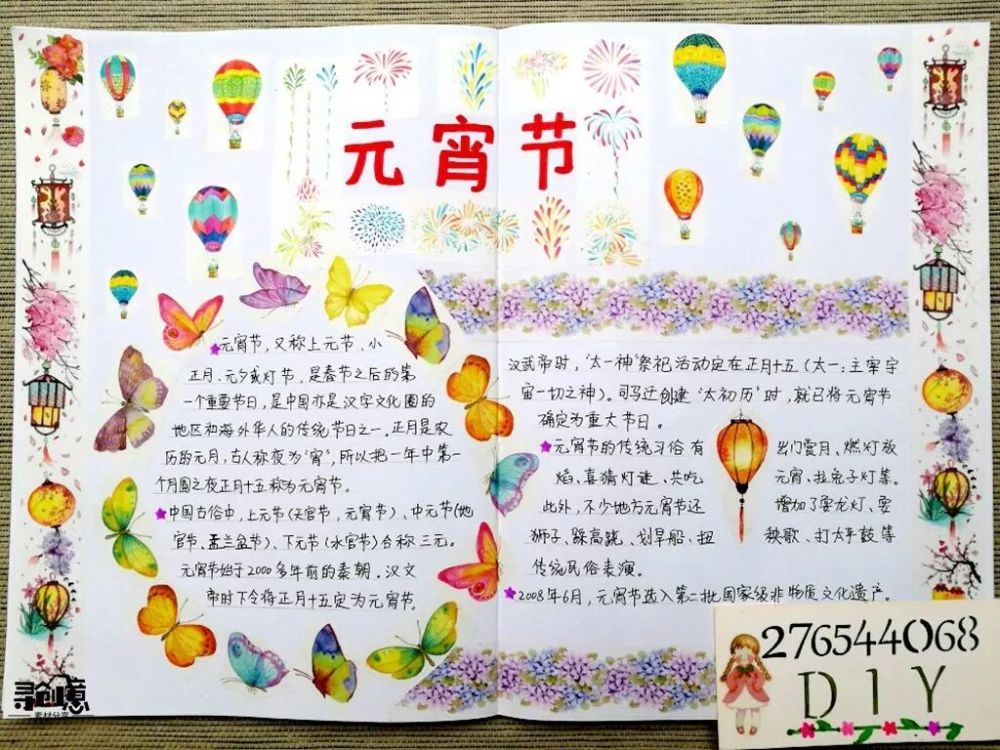 元宵节
元宵节，又称上元节、小
正月、元夕或灯节，是春节之后的第
一个重要节日，是中国亦是汉字文化圈的
地区和海外华人的传统节日之一。正月是农
历的元月，古人称夜为“宵”，所以把一年中第一
个月圆之夜正月十五称为元宵节。
中国古俗中，上元节（天官节，元宵节）、中元节（地
官节、盂兰盆节）、下元节（水官节）合称三元。
元宵节始于2000多年前的秦朝。汉文
帝时下令将正月十五定为元宵节。
汉武帝时，“太一神”祭祀活动定在正月十五（太一：主宰宇
宙一切之神）。司马迁创建“太初历”时，就已将元宵节
确定为重大节日。
元宵节的传统习俗有 出门赏月、燃灯放
焰、喜猜灯谜、共吃 元宵、拉兔子灯等。
此外，不少地方元宵节还 增加了耍龙灯、耍
狮子、踩高跷、划旱船、扭 秧歌、打太平鼓等
传统民俗表演。
2008年6月，元宵节选入第二批国家级非物质文化遗产。
276544068
DIY
寻创意
素材分享